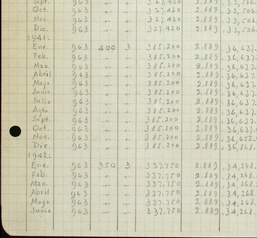 Sept. 963
Oct. 963 327.420 2.889 33,506
Nov. 963 327.420 2.889 33,506
Dic. 963 327.420 2.889 33,506
1941.
Ene. 963 400 3 385.200 2.889 36,637
Feb. 963 385.200 2.889 36,637
Mzo. 963 385.200 2.889 36,637
Abril 963 385.200 2.889 36,637
Mayo 963 385.200 2.889 36,637
Junio 963 385.200 2.889 36,637
Julio 963 385.200 2.889 36,637
Agto. 963 385.200 2.889 36,637
Sept. 963 385.200 2.889 36,637
Oct. 963 385.200 2.889 36,637
Nov. 963 385.200 2.889
Dic. 963 385.200 2.889
1942.
Ene. 963 350 3 337.750 2.889 34,268
Feb. 963 337.750 2.889 34,268
Mzo. 963 337.750 2.889 34,268
Abril 963 337.750 2.889 34,268
Mayo 963 337.750 2.889 34,268
Junio 963 337.750 2.889 34,268